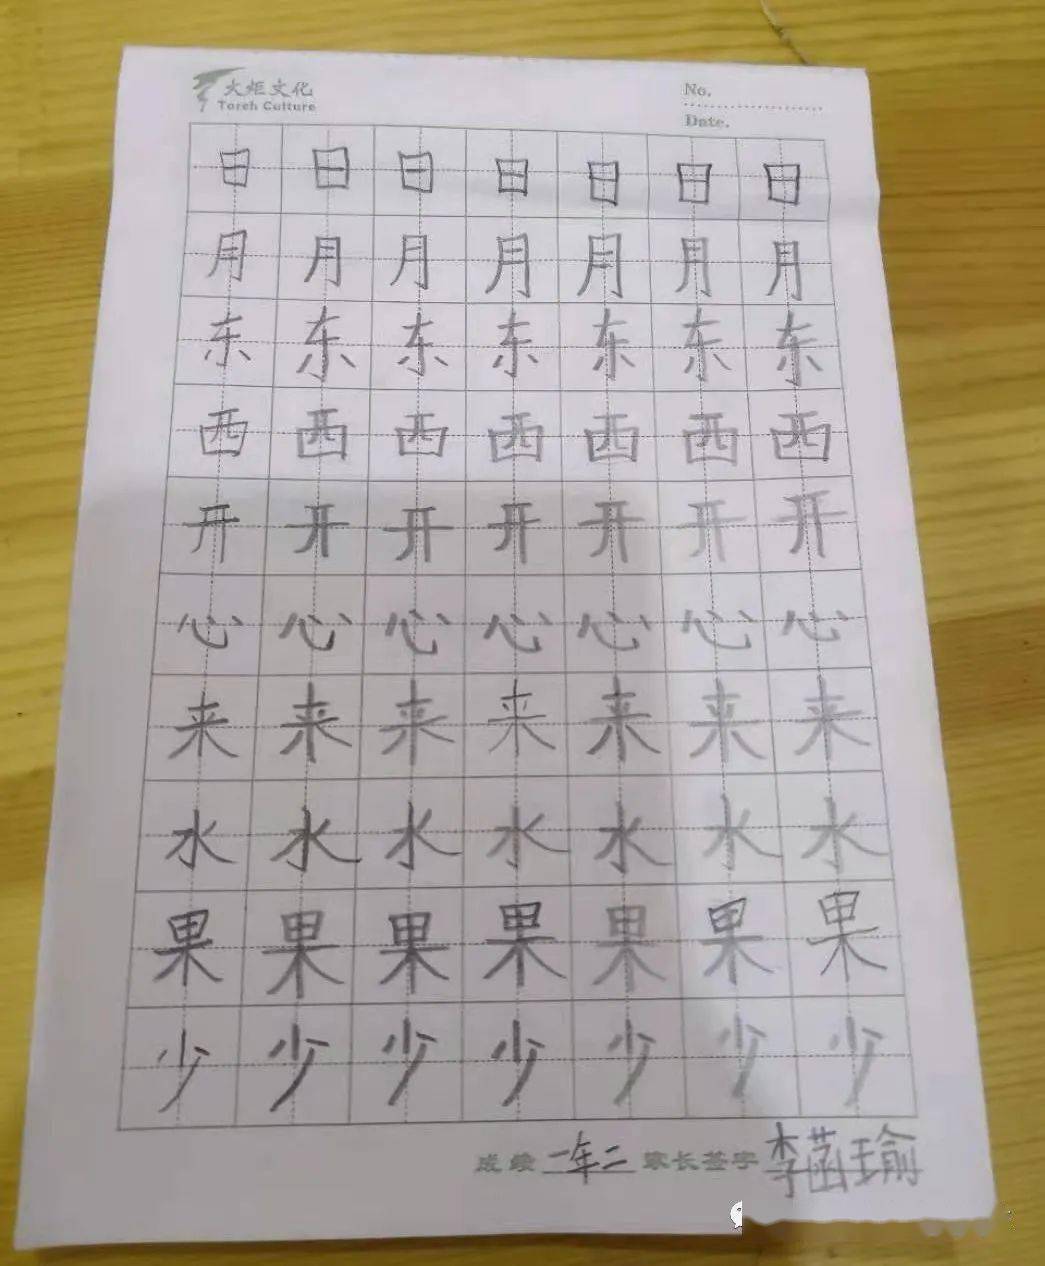 火炬文化
Torch Culture
No.
Date.
日 日 日 日 日 日 日
月 月 月 月 月 月 月
东 东 东 东 东 东 东
西 西 西 西 西 西 西
开 开 开 开 开 开 开
心 心 心 心 心 心 心
来 来 来 来 来 来 来
水 水 水 水 水 水 水
果 果 果 果 果 果 果
少 少 少 少 少 少 少
成绩 一年二 家长签字 李菡瑜